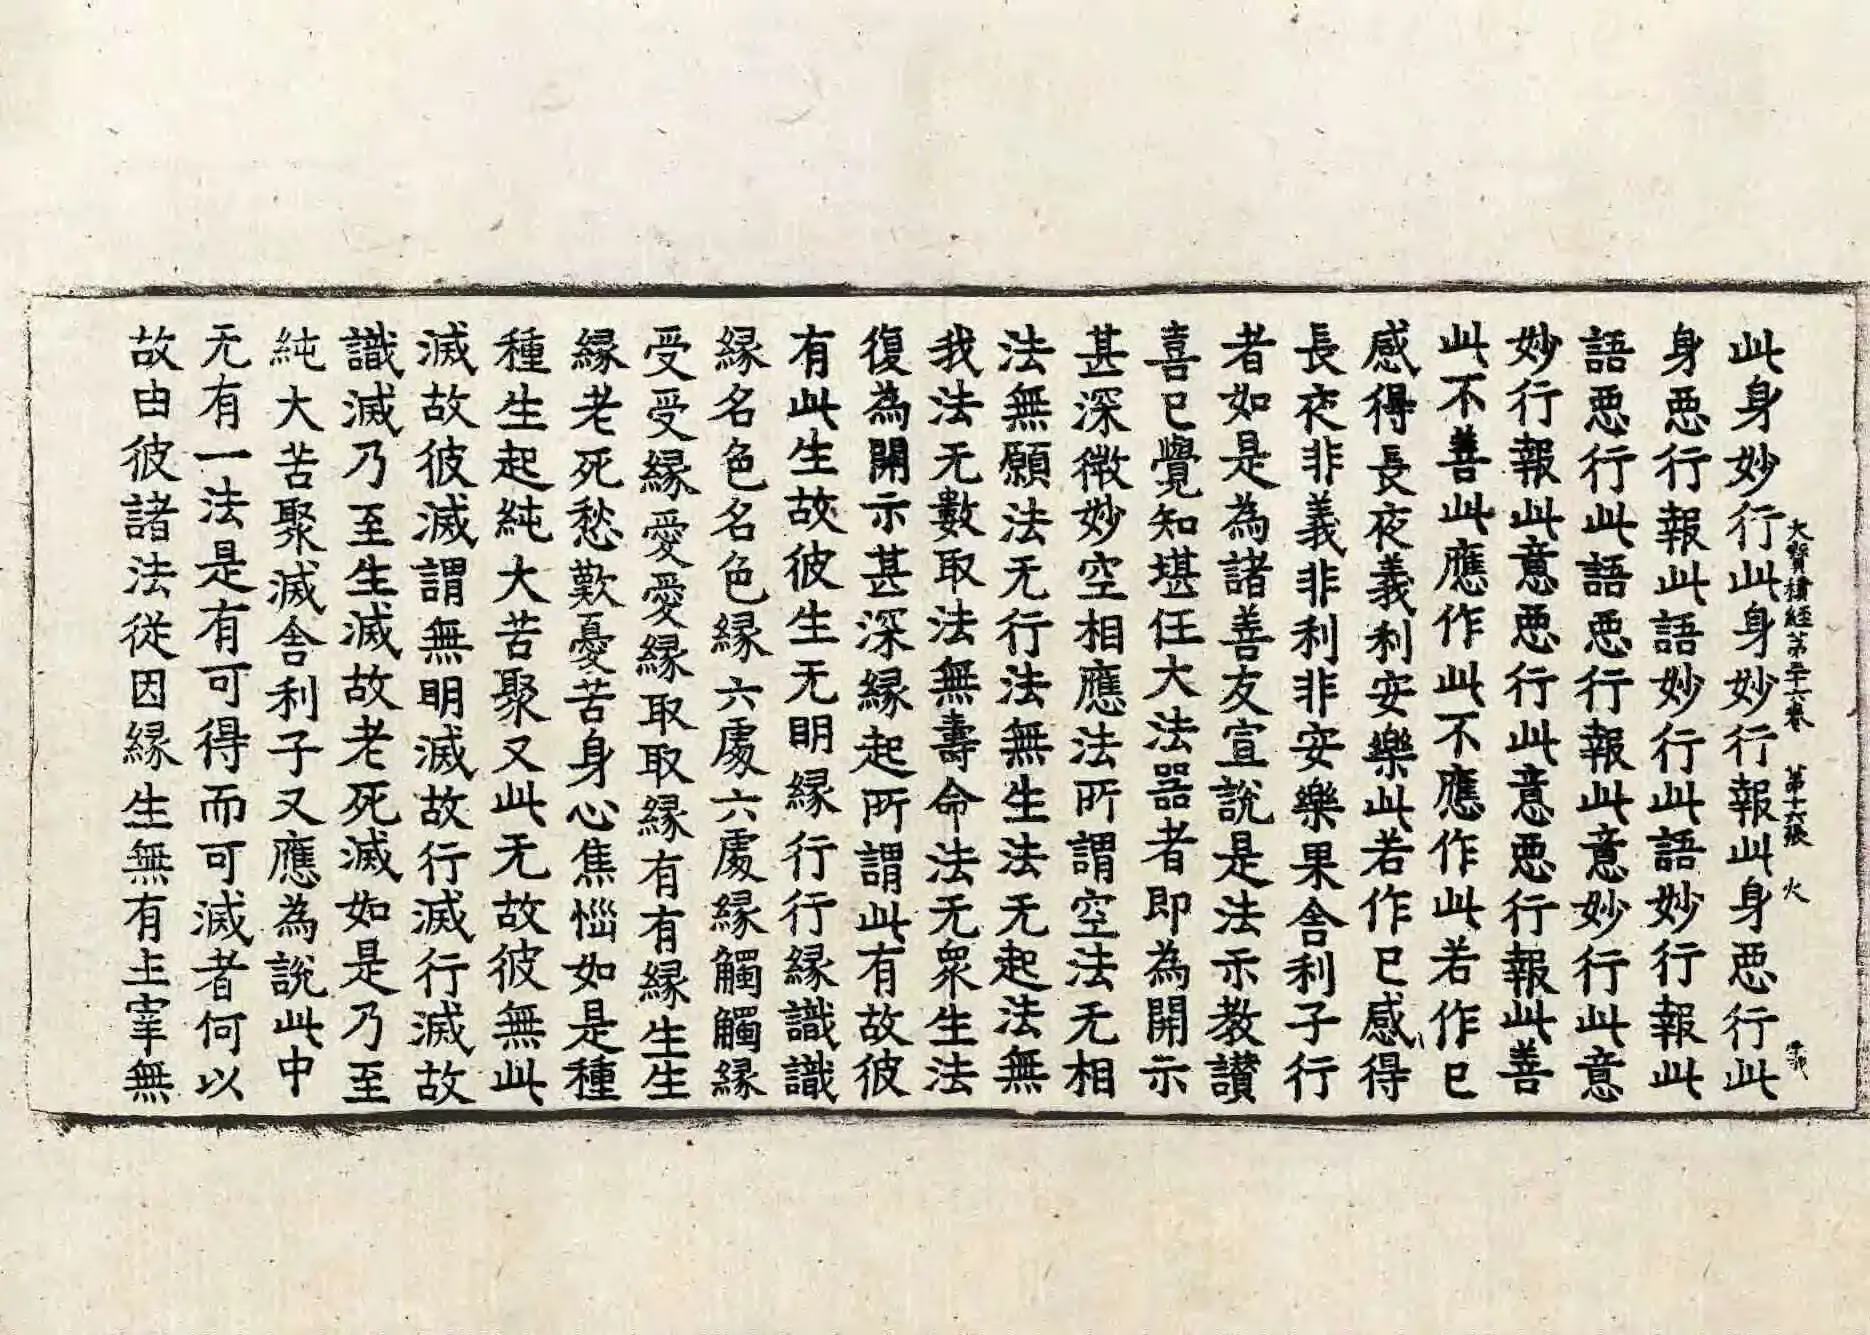 大寳積經第三十六卷 第十六張 火
此身妙行此身妙行報此身惡行此
身惡行報此語妙行此語妙行報此
語惡行此語惡行報此意妙行此意
妙行報此意惡行此意惡行報此善
此不善此應作此不應作此若作已
感得長夜義利安樂此若作已感得
長夜非義非利非安樂果舍利子行
者如是為諸善友宣說是法示教讚
喜已覺知堪任大法器者即為開示
甚深微妙空相應法所謂空法无相
法無願法无行法無生法无起法無
我法无數取法無壽命法无衆生法
復為開示甚深縁起所謂此有故彼
有此生故彼生无明縁行行縁識識
縁名色名色縁六處六處縁觸觸縁
受受縁愛愛縁取取縁有有縁生生
縁老死愁歎憂苦身心焦惱如是種
種生起純大苦聚又此无故彼無此
滅故彼滅謂無明滅故行滅行滅故
識滅乃至生滅故老死滅如是乃至
純大苦聚滅舍利子又應為說此中
无有一法是有可得而可滅者何以
故由彼諸法從因縁生無有主宰無